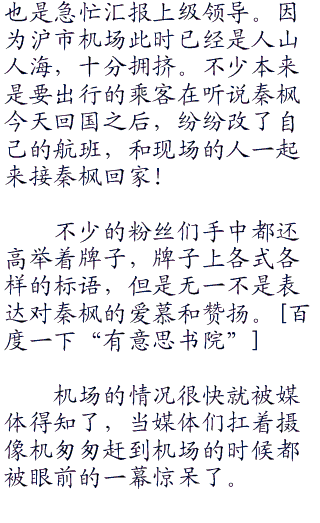 也是急忙汇报上级领导。因
为沪市机场此时已经是人山
人海，十分拥挤。不少本来
是要出行的乘客在听说秦枫
今天回国之后，纷纷改了自
己的航班，和现场的人一起
来接秦枫回家！
不少的粉丝们手中都还
高举着牌子，牌子上各式各
样的标语，但是无一不是表
达对秦枫的爱慕和赞扬。[百
度一下“有意思书院”]
机场的情况很快就被媒
体得知了，当媒体们扛着摄
像机匆匆赶到机场的时候都
被眼前的一幕惊呆了。